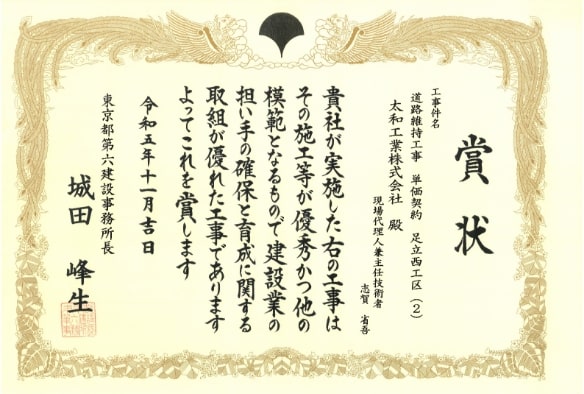 賞状
工事件名
道路維持工事 単価契約 足立西工区(2)
太和工業株式会社 殿
現場代理人兼主任技術者
志賀 省吾
貴社が実施した右の工事は
その施工等が優秀かつ他の
模範となるもので建設業の
担い手の確保と育成に関する
取組が優れた工事であります
よってこれを賞します
令和五年十一月吉日
東京都第六建設事務所長
城田 峰生